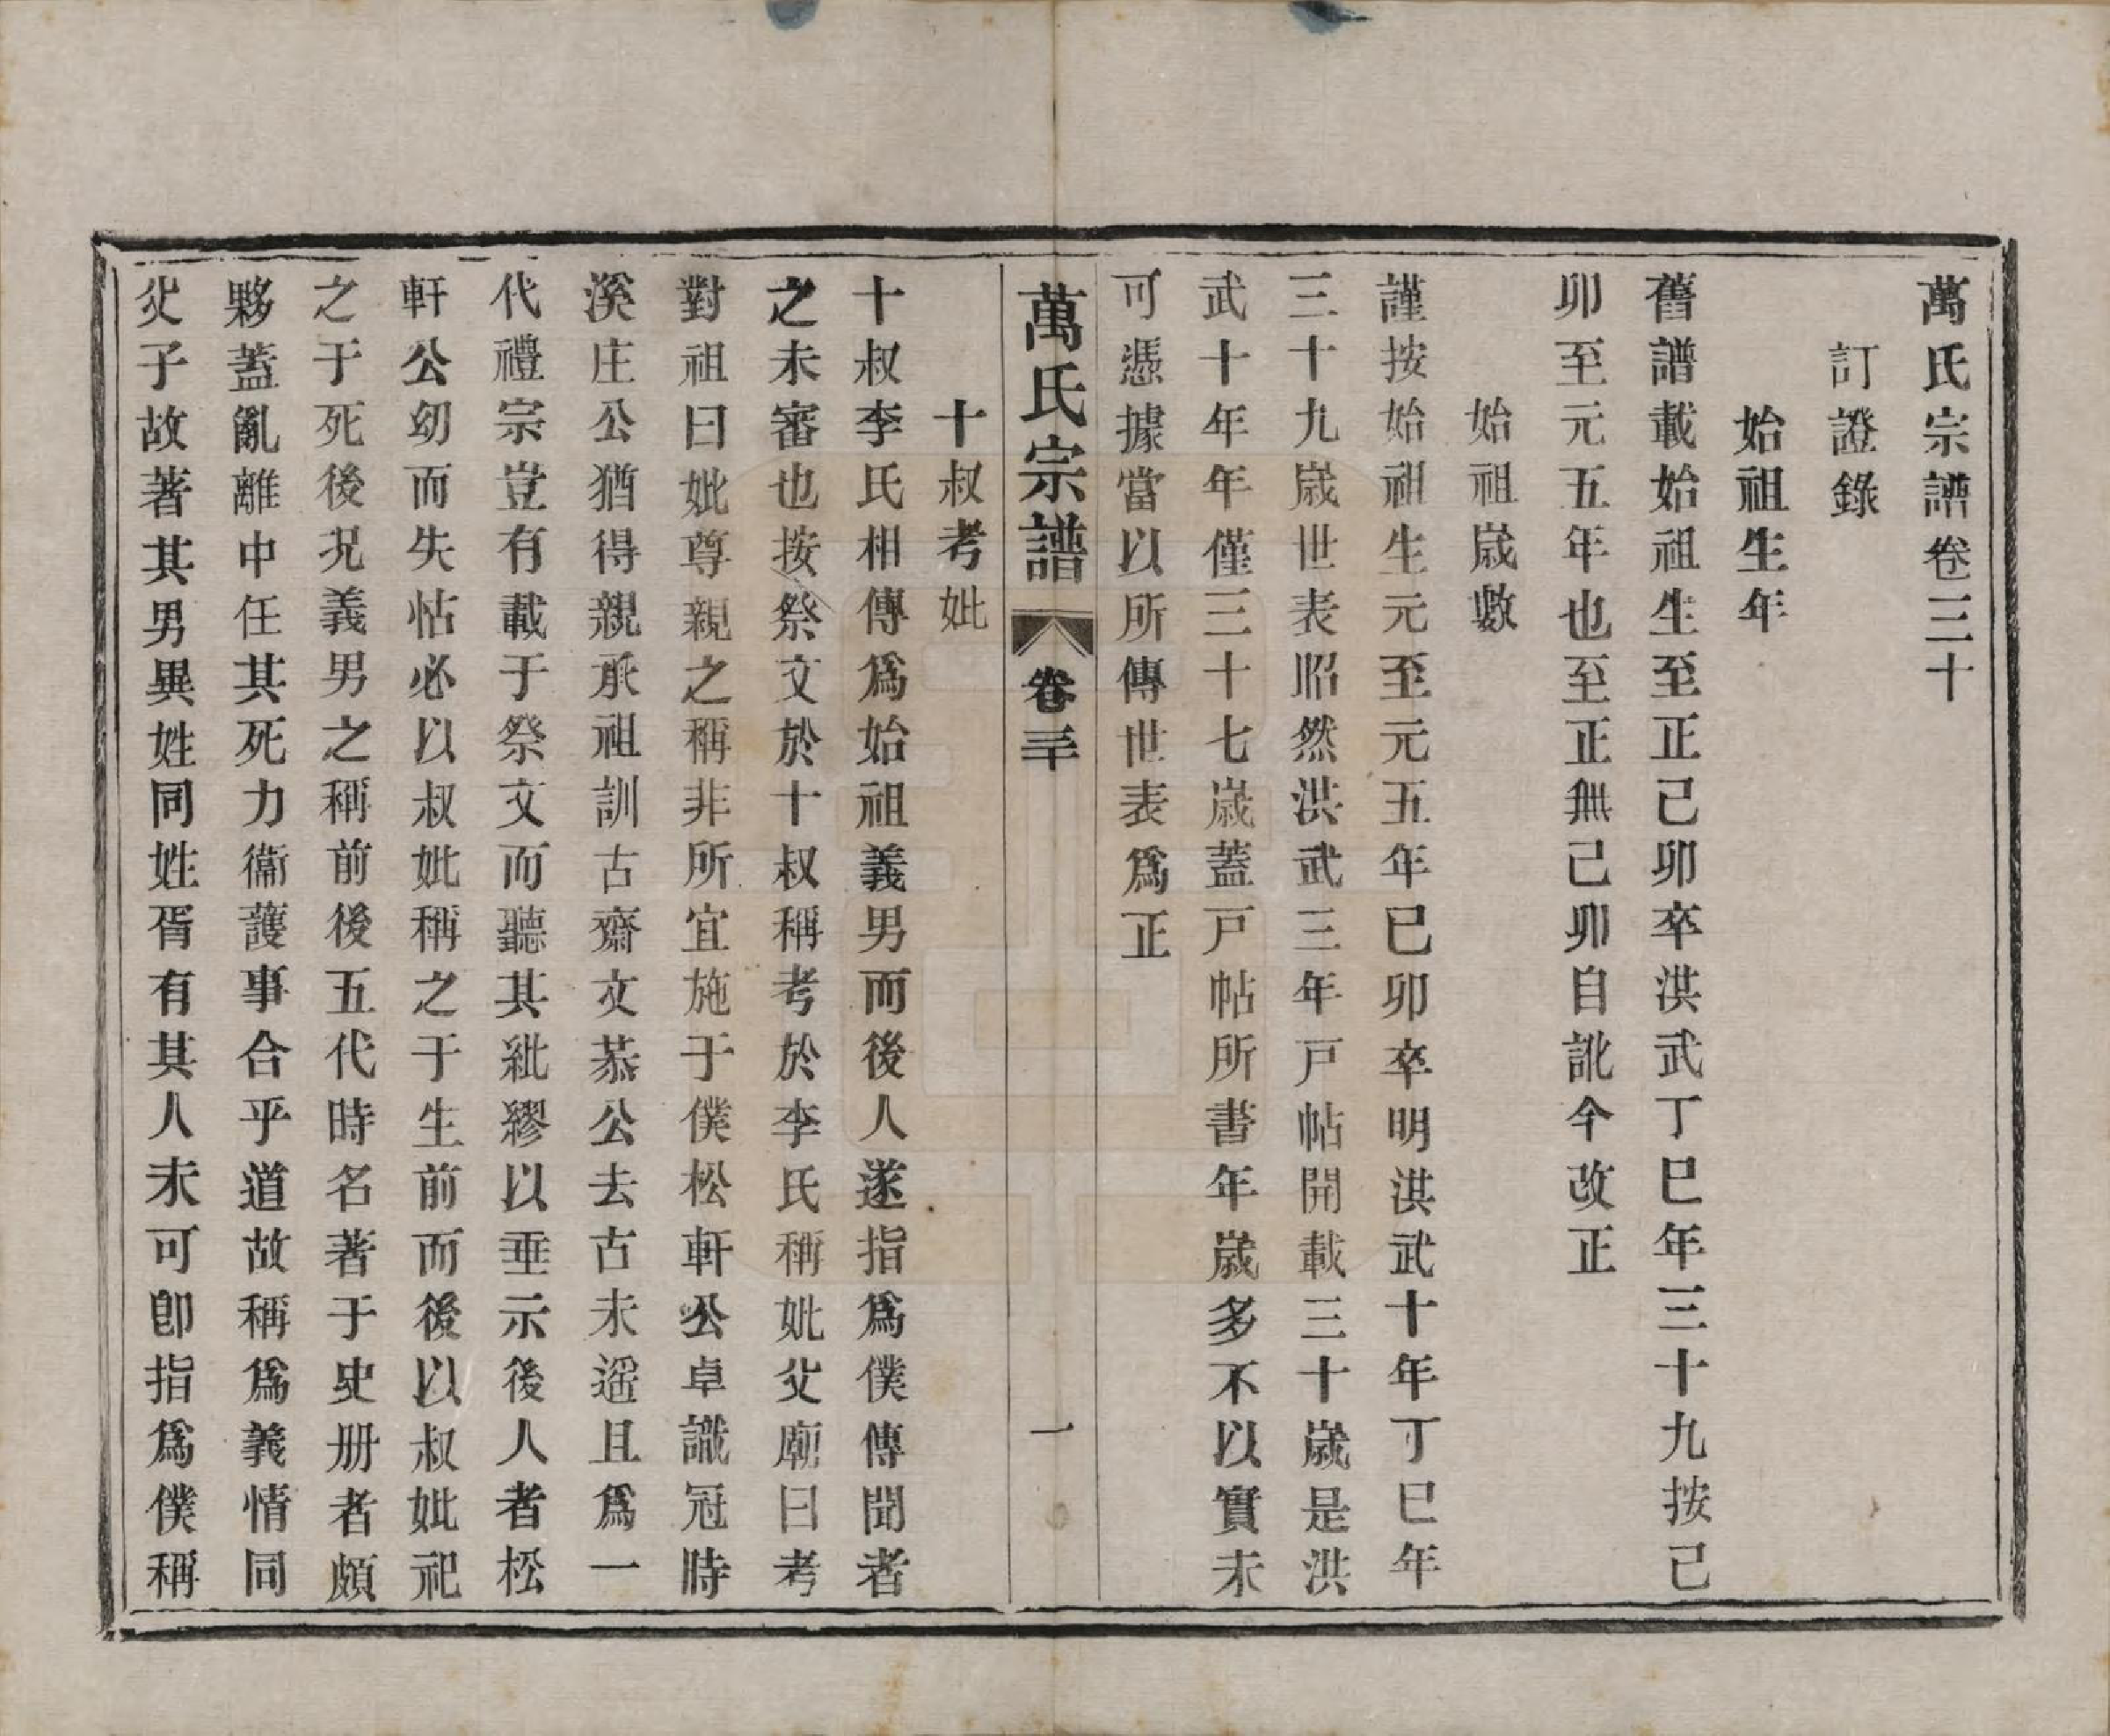 萬氏宗譜卷三十
訂證錄
始祖生年
舊譜載始祖生至正己卯卒洪武丁巳年三十九按己
卯至元五年也至正無己卯自訛今改正
始祖歲數
謹按始祖生元至元五年己卯卒明洪武十年丁巳年
三十九歲世表昭然洪武三年戸帖開載三十歲是洪
武十年年僅三十七歲蓋戸帖所書年歲多不以實未
可憑據當以所傳世表爲正
萬氏宗譜 卷三十 一
十叔考妣
十叔李氏相傳爲始祖義男而後人遂指爲僕傳聞者
之未審也按祭文於十叔稱考於李氏稱妣父廟曰考
對祖曰妣尊親之稱非所宜施于僕松軒公卓識冠時
溪庄公猶得親承祖訓古齋文恭公去古未遥且爲一
代禮宗豈有載于祭文而聽其紕繆以垂示後人者松
軒公幼而失怙必以叔妣稱之于生前而後以叔妣祀
之于死後况義男之稱前後五代時名著于史册者頗
夥蓋亂離中任其死力衞護事合乎道故稱爲義情同
父子故著其男異姓同姓胥有其人未可卽指爲僕稱